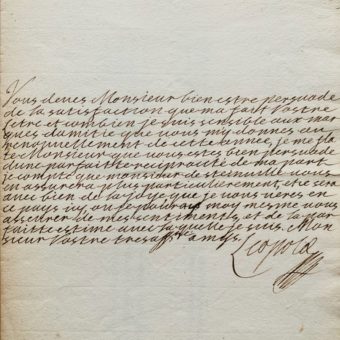 Vous deves Monsieur bien estre persuade
de la satisfaction que ma fait vostre
letre et combien je suis sensible aux mar
ques damitie que vous my donnes au
renouvellement de cette année, je me fla
te Monsieur que vous estes bien persuade
dune parfaite reciprocité de ma part
je compte que monsieur de stainville vous
en assurera plus particulierement, ce sera
avec bien de la joye que je vous veres en
ce pays icy ou je pouray moy mesme vous
assurer de mes sentiments, et de la par
faitte estime avec la quelle je suis. Mon
sieur Vostre tres aff.ne amys.
Leopold